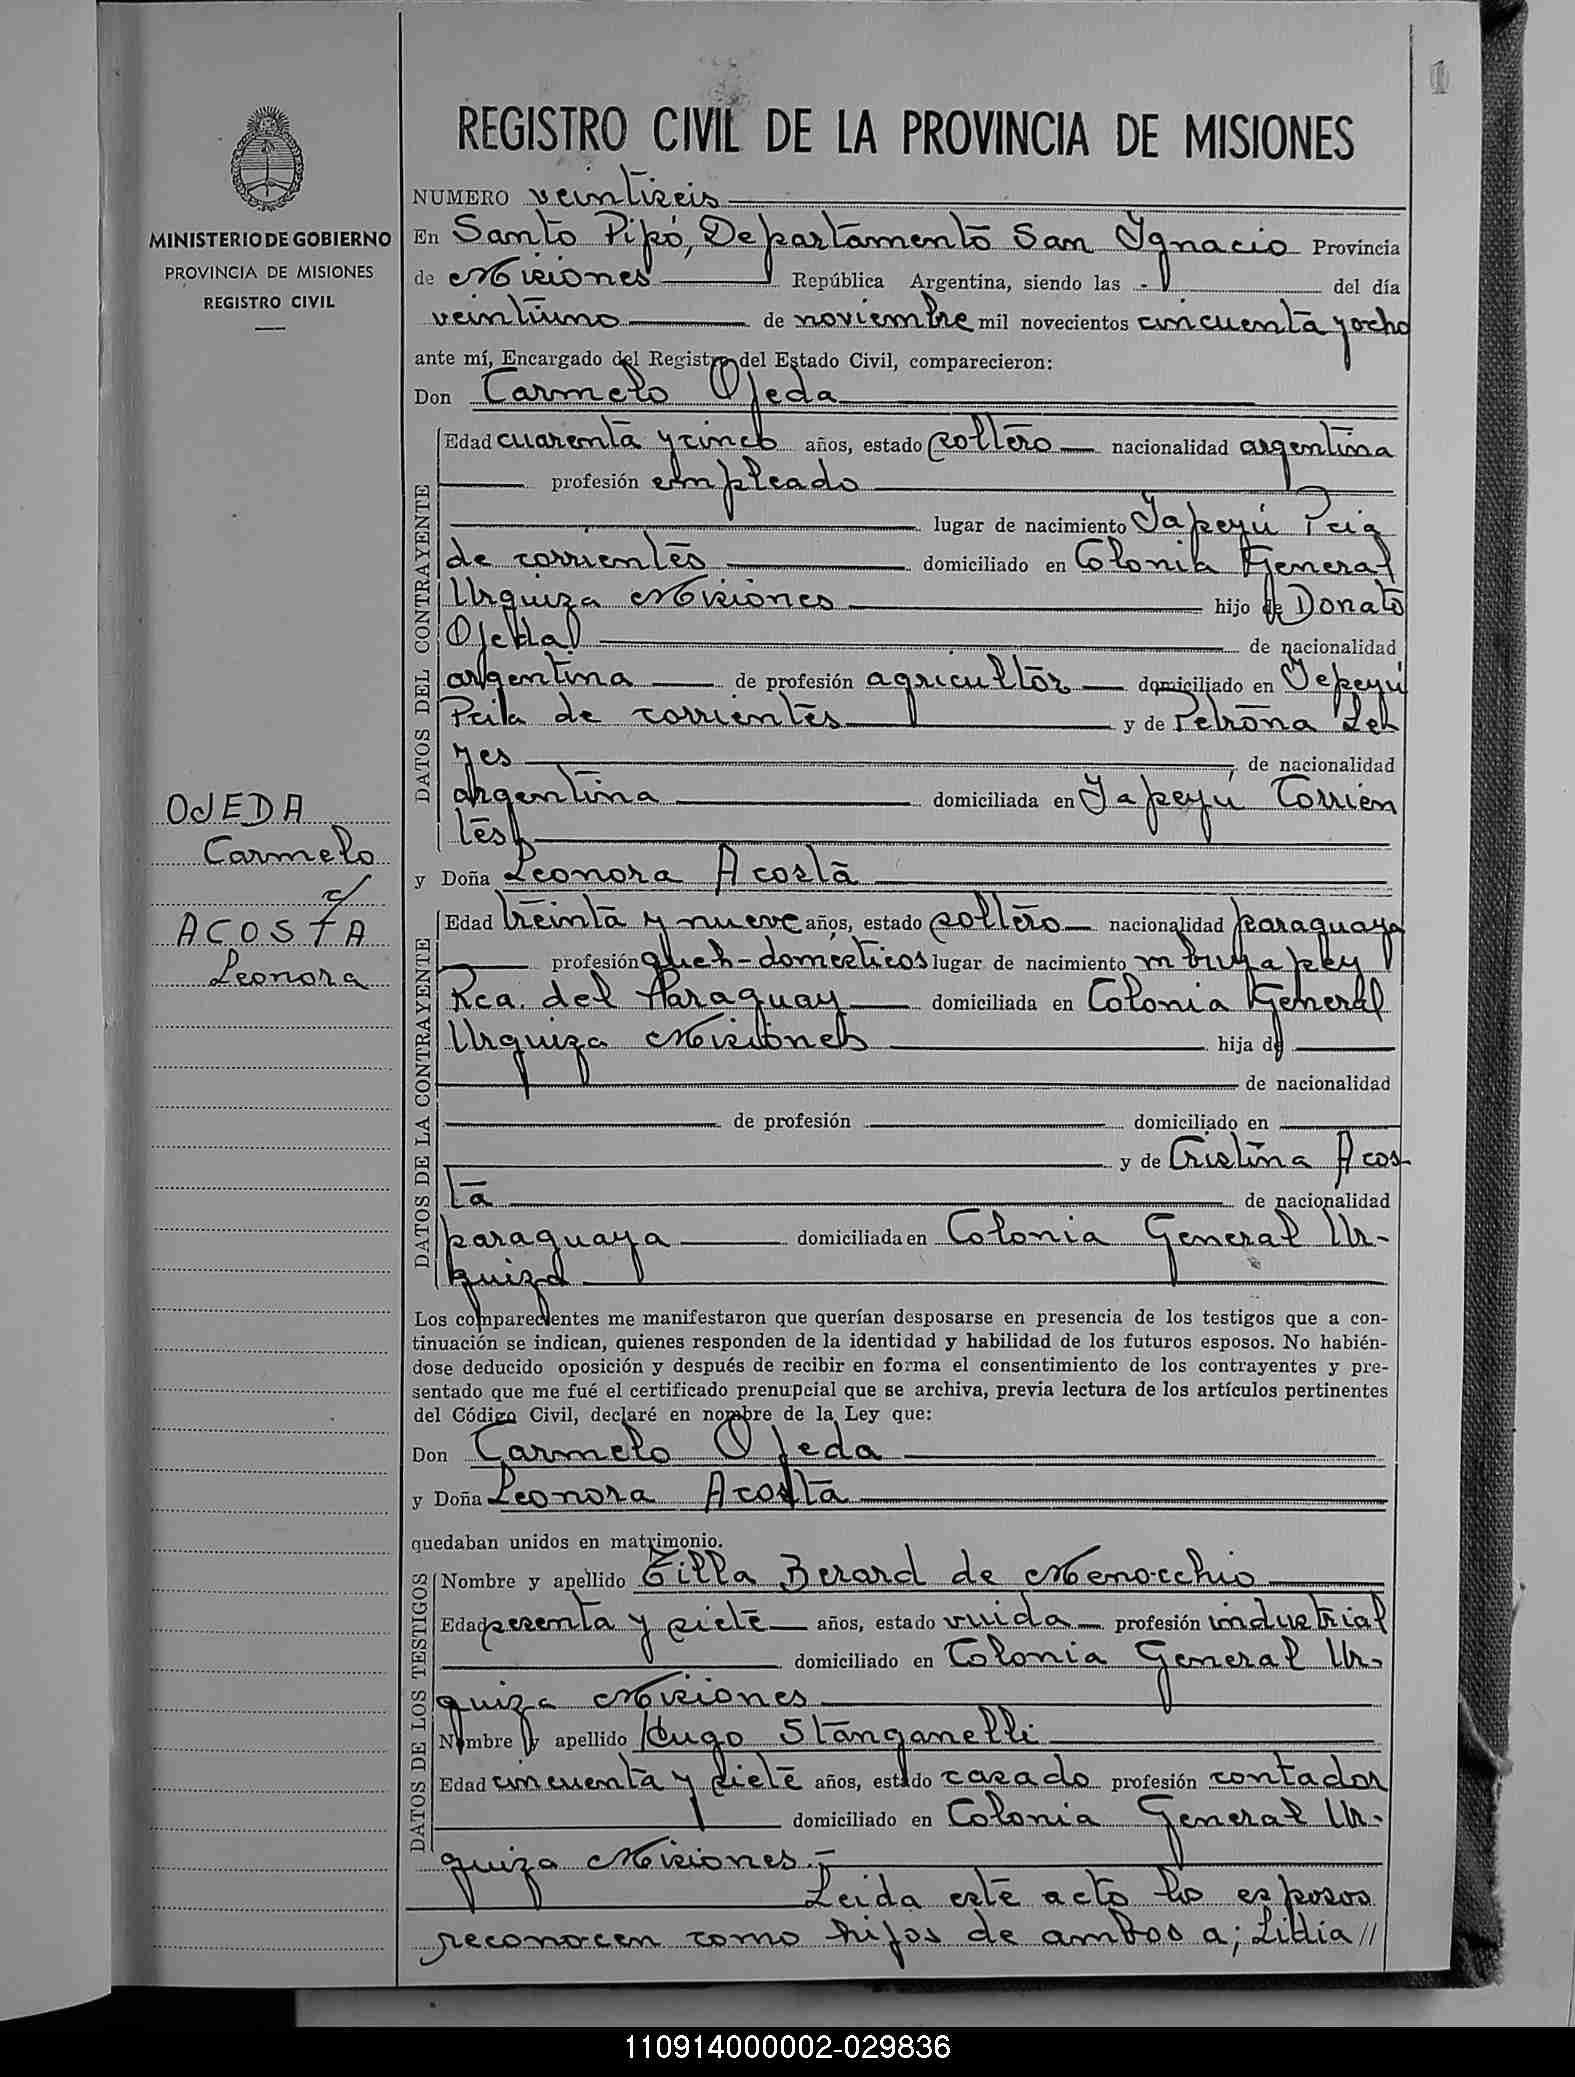 REGISTRO CIVIL DE LA PROVINCIA DE MISIONES
MINISTERIO DE GOBIERNO
PROVINCIA DE MISIONES
REGISTRO CIVIL
OJEDA
Carmelo
c/
ACOSTA
Leonora
NUMERO veintiseis
En Santo Pipó, Departamento San Ygnacio Provincia
de Misiones República Argentina, siendo las del día
veintiuno de noviembre mil novecientos cincuenta y ocho
ante mí, Encargado del Registro del Estado Civil, comparecieron:
Don Carmelo Ojeda
DATOS DEL CONTRAYENTE
Edad cuarenta y cinco años, estado soltero nacionalidad argentina
profesión empleado
lugar de nacimiento Yapeyú Pcia
de corrientes domiciliado en Colonia General
Urquiza Misiones hijo de Donato
Ojeda de nacionalidad
argentina de profesión agricultor domiciliado en Yepeyú
Pcia de corrientes y de Petrona
de nacionalidad
argentina domiciliada en Yapeyú Corrien
tes
y Doña Leonora Acosta
DATOS DE LA CONTRAYENTE
Edad treinta y nueve años, estado soltero nacionalidad paraguaya
profesión queh-domesticos lugar de nacimiento mbuyapey
Rca. del Paraguay domiciliada en Colonia General
Urquiza Misiones hija de
de nacionalidad
de profesión domiciliado en
y de Cristina Acos
ta de nacionalidad
paraguaya domiciliada en Colonia General Ur-
quiza
Los comparecientes me manifestaron que querían desposarse en presencia de los testigos que a con-
tinuación se indican, quienes responden de la identidad y habilidad de los futuros esposos. No habién-
dose deducido oposición y después de recibir en forma el consentimiento de los contrayentes y pre-
sentado que me fué el certificado prenupcial que se archiva, previa lectura de los artículos pertinentes
del Código Civil, declaré en nombre de la Ley que:
Don Carmelo Ojeda
y Doña Leonora Acosta
quedaban unidos en matrimonio.
DATOS DE LOS TESTIGOS
Nombre y apellido Tilla Berard de Menocchio
Edad sesenta y siete años, estado viuda profesión industrial
domiciliado en Colonia General Ur-
quiza Misiones
Nombre y apellido Hugo Stanganelli
Edad cincuenta y siete años, estado casado profesión contador
domiciliado en Colonia General Ur-
quiza Misiones.-
Leida este acto los esposos
reconocen como hijos de ambos a; Lidia //
110914000002-029836